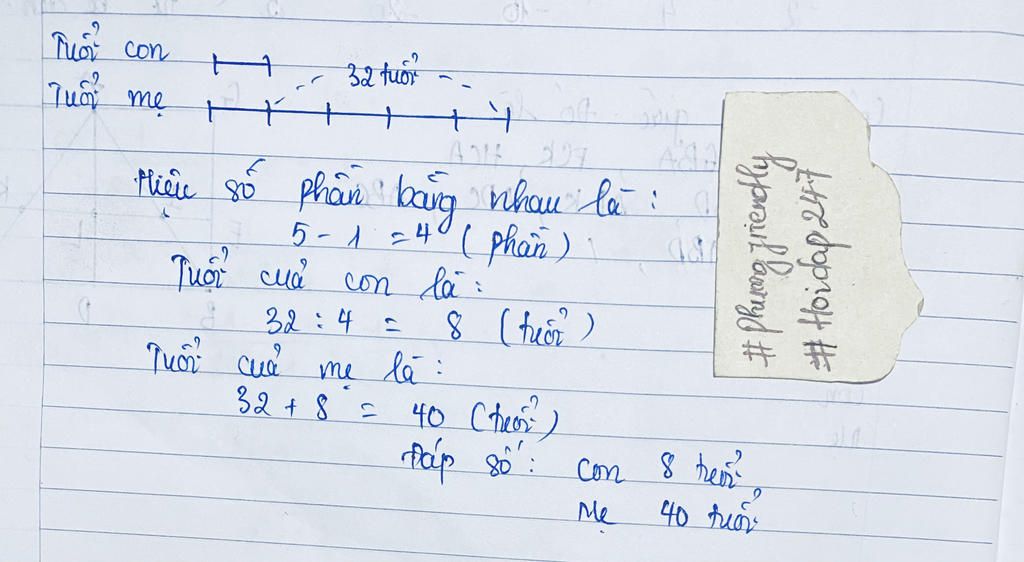 Tuổi con
32 tuổi
Tuổi mẹ
Hiệu số phần bằng nhau là:
5 - 1 = 4 (phần)
Tuổi của con là:
32 : 4 = 8 (tuổi)
Tuổi của mẹ là:
32 + 8 = 40 (tuổi)
Đáp số: con 8 tuổi
Mẹ 40 tuổi
#phuongfriendly
#Hoidap247